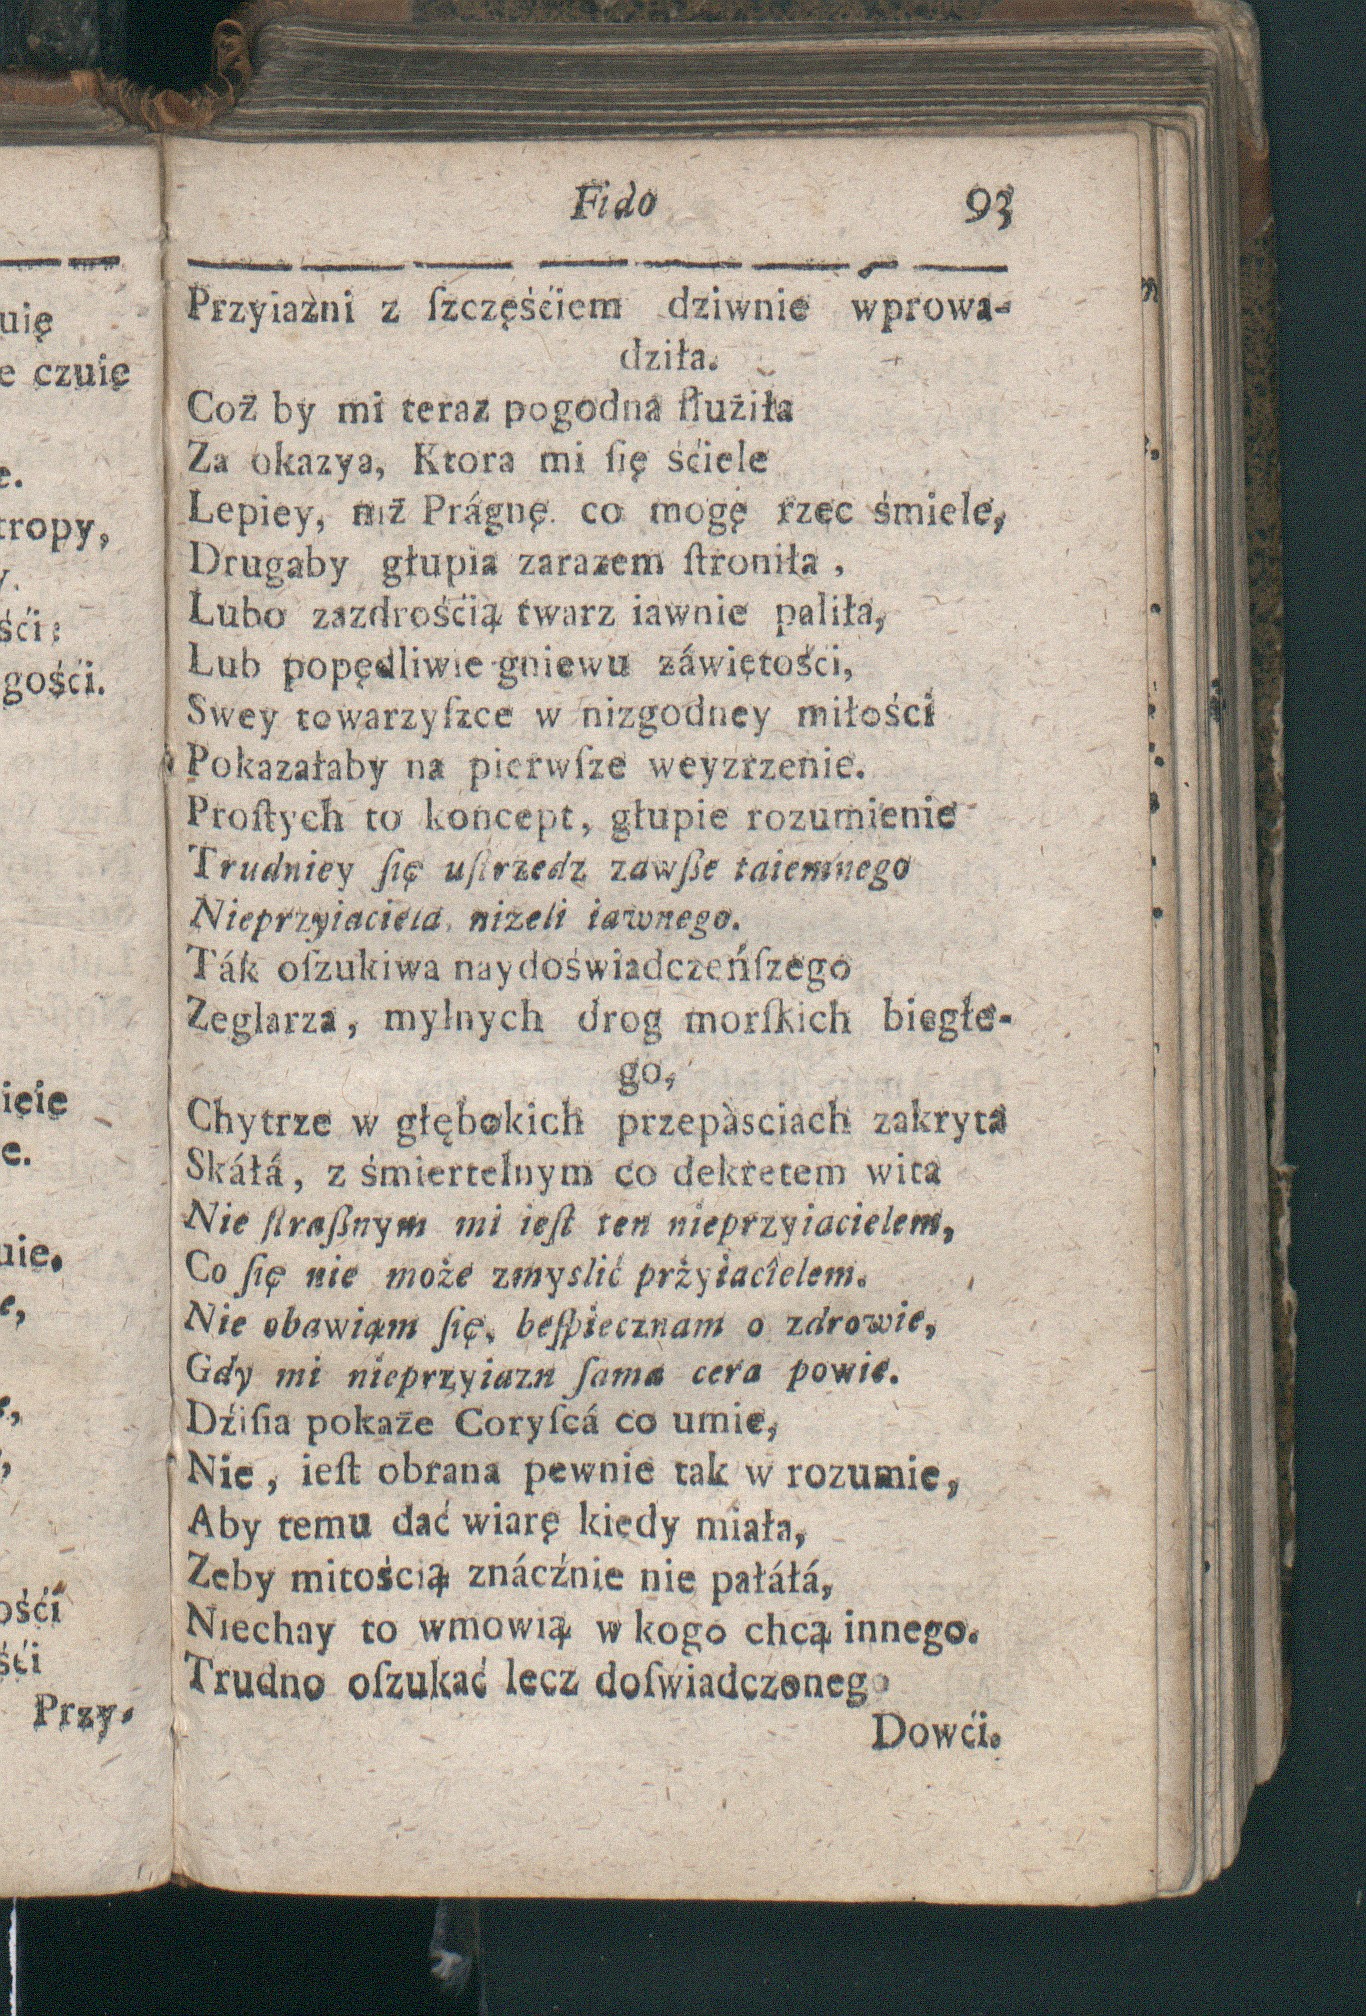 uię
e czuię
e.
tropy,
y.
śći;
gośći.
ięie
e.
uie.
e,
e,
,
ośći
śći
Przy-
Fido 93
Przyiazni z ſzczęśćiem dziwnie wprowa-
dziła.
Coż by mi teraz pogodna ſłużiła
Za okazya, Ktora mi ſię śćiele
Lepiey, niż Prágnę. co mogę rzec śmiele,
Drugaby głupia zarazem ſtroniła,
Lubo zazdrośćią twarz iawnie paliła,
Lub popędliwie gniewu záwiętości,
Swey towarzyſzce w nizgodney miłości
Pokazałaby na pierwſze weyzrzenie.
Proſtych to koncept, głupie rozumienie
Trudniey ſię uſtrzedz zawße taiemnego
Nieprzyiaciela, niżeli iawnego.
Ták oſzukiwa naydoświadczeńſzego
Zeglarza, mylnych drog morſkich biegłe-
go,
Chytrze w głębokich przepàsciach zakryta
Skáłá, z śmiertelnym co dekretem wita
Nie ſtraßnym mi ieſt ten nieprzyiacielem,
Co ſię nie może zmyslić przyiacielem.
Nie obawiąm ſię, beſpiecznam o zdrowie,
Gdy mi nieprzyiazn ſama cera powie.
Dźiſia pokaże Coryſcá co umie,
Nie, ieſt obrana pewnie tak w rozumie,
Aby temu dać wiarę kiedy miała,
Zeby mitością znácźnie nie pałáłá,
Niechay to wmowią w kogo chcą innego.
Trudno oſzukać lecz doſwiadczonego
Dowći.